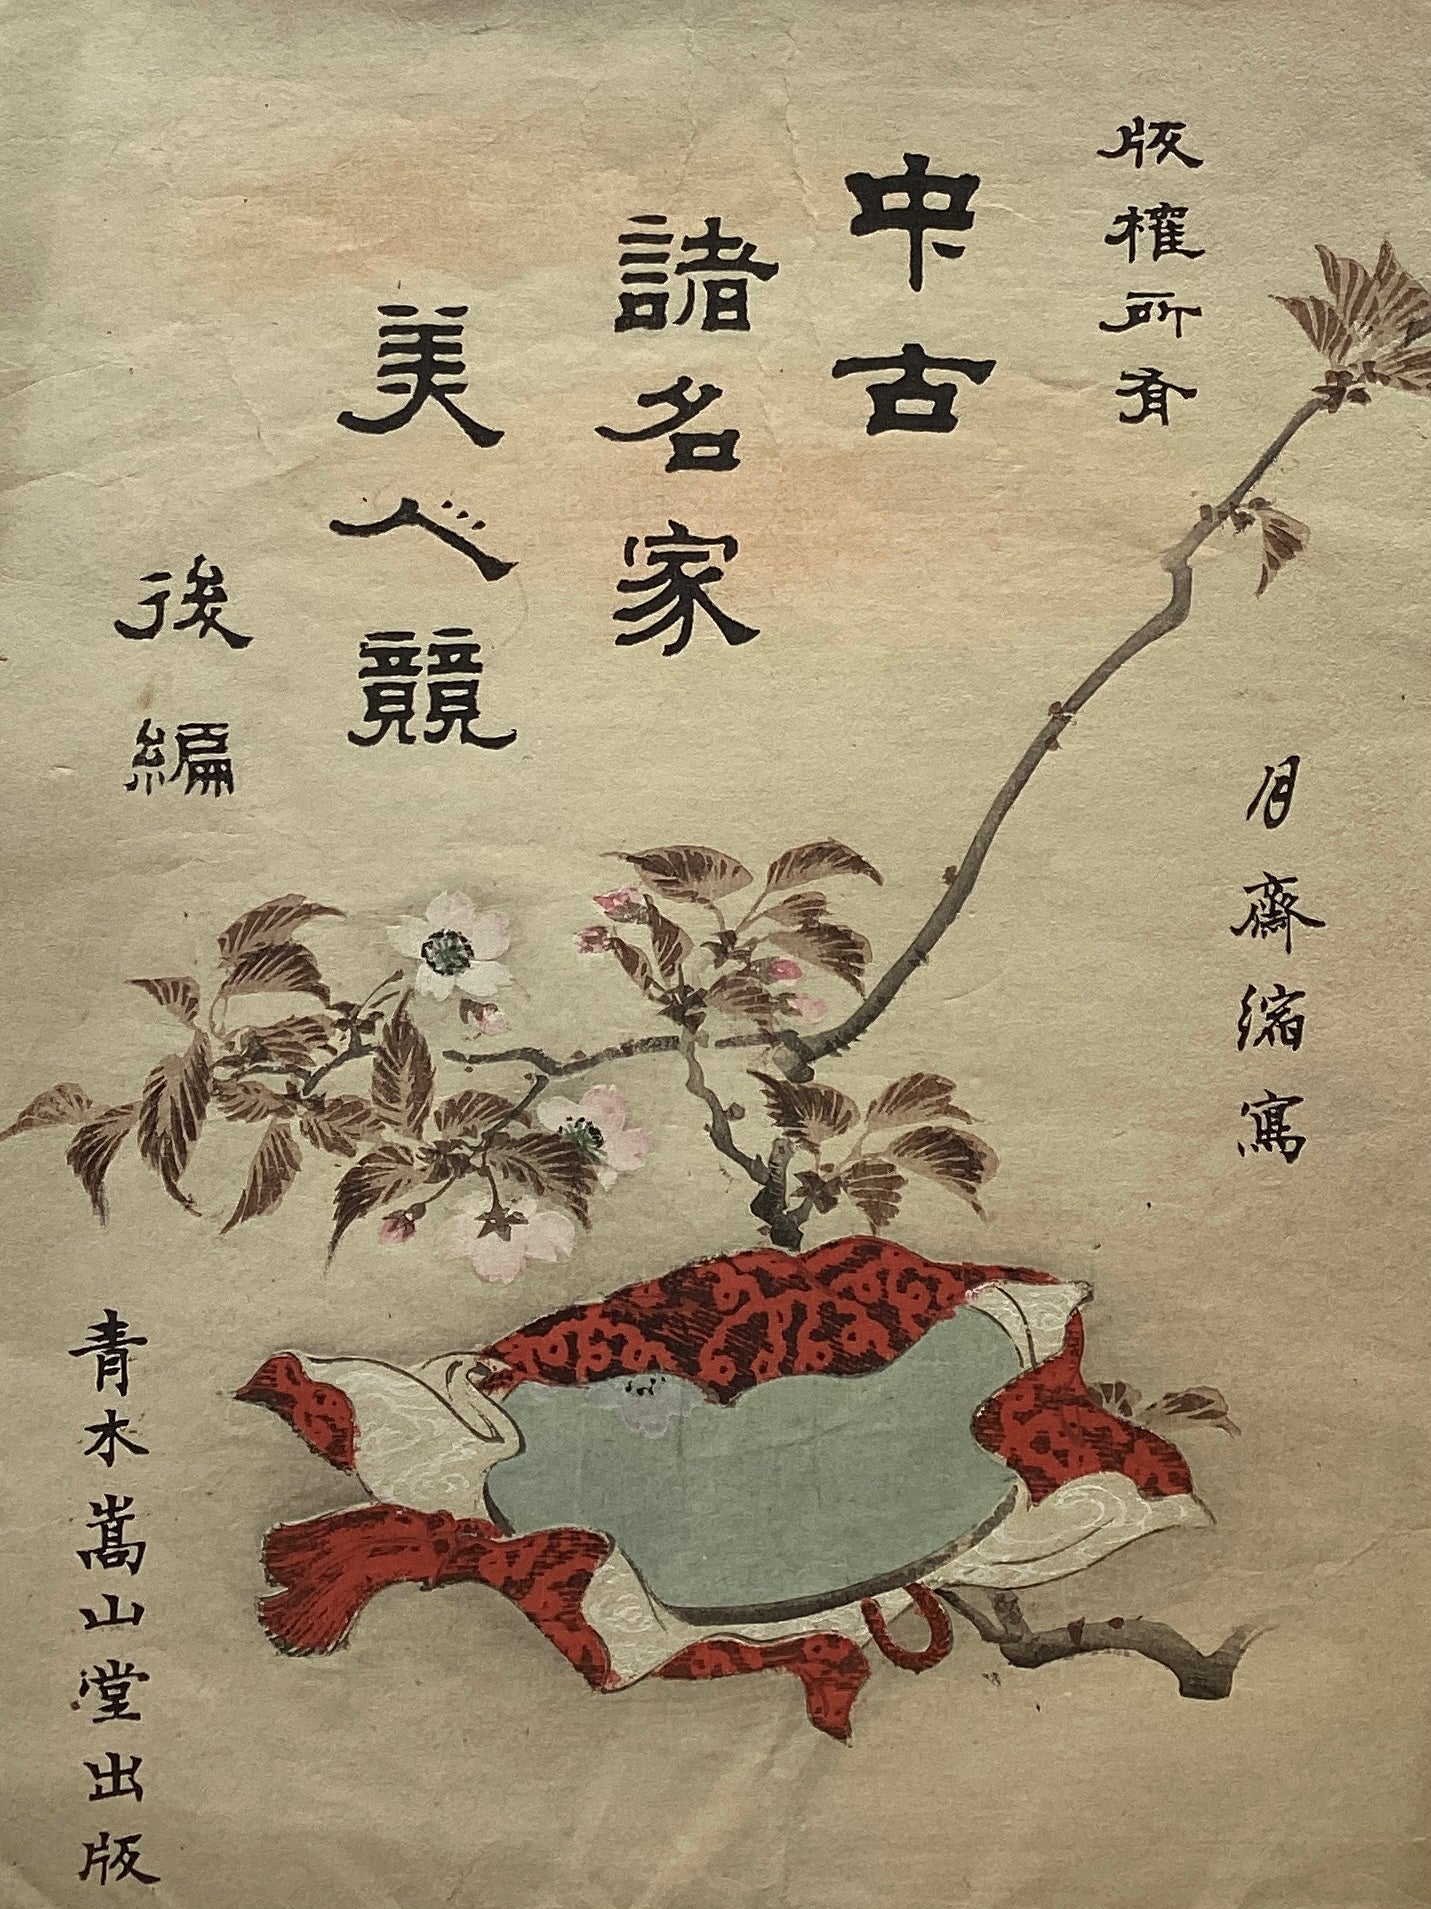 版権所有
中古
諸名家
美人競
後編
月齋縮寫
青木嵩山堂出版